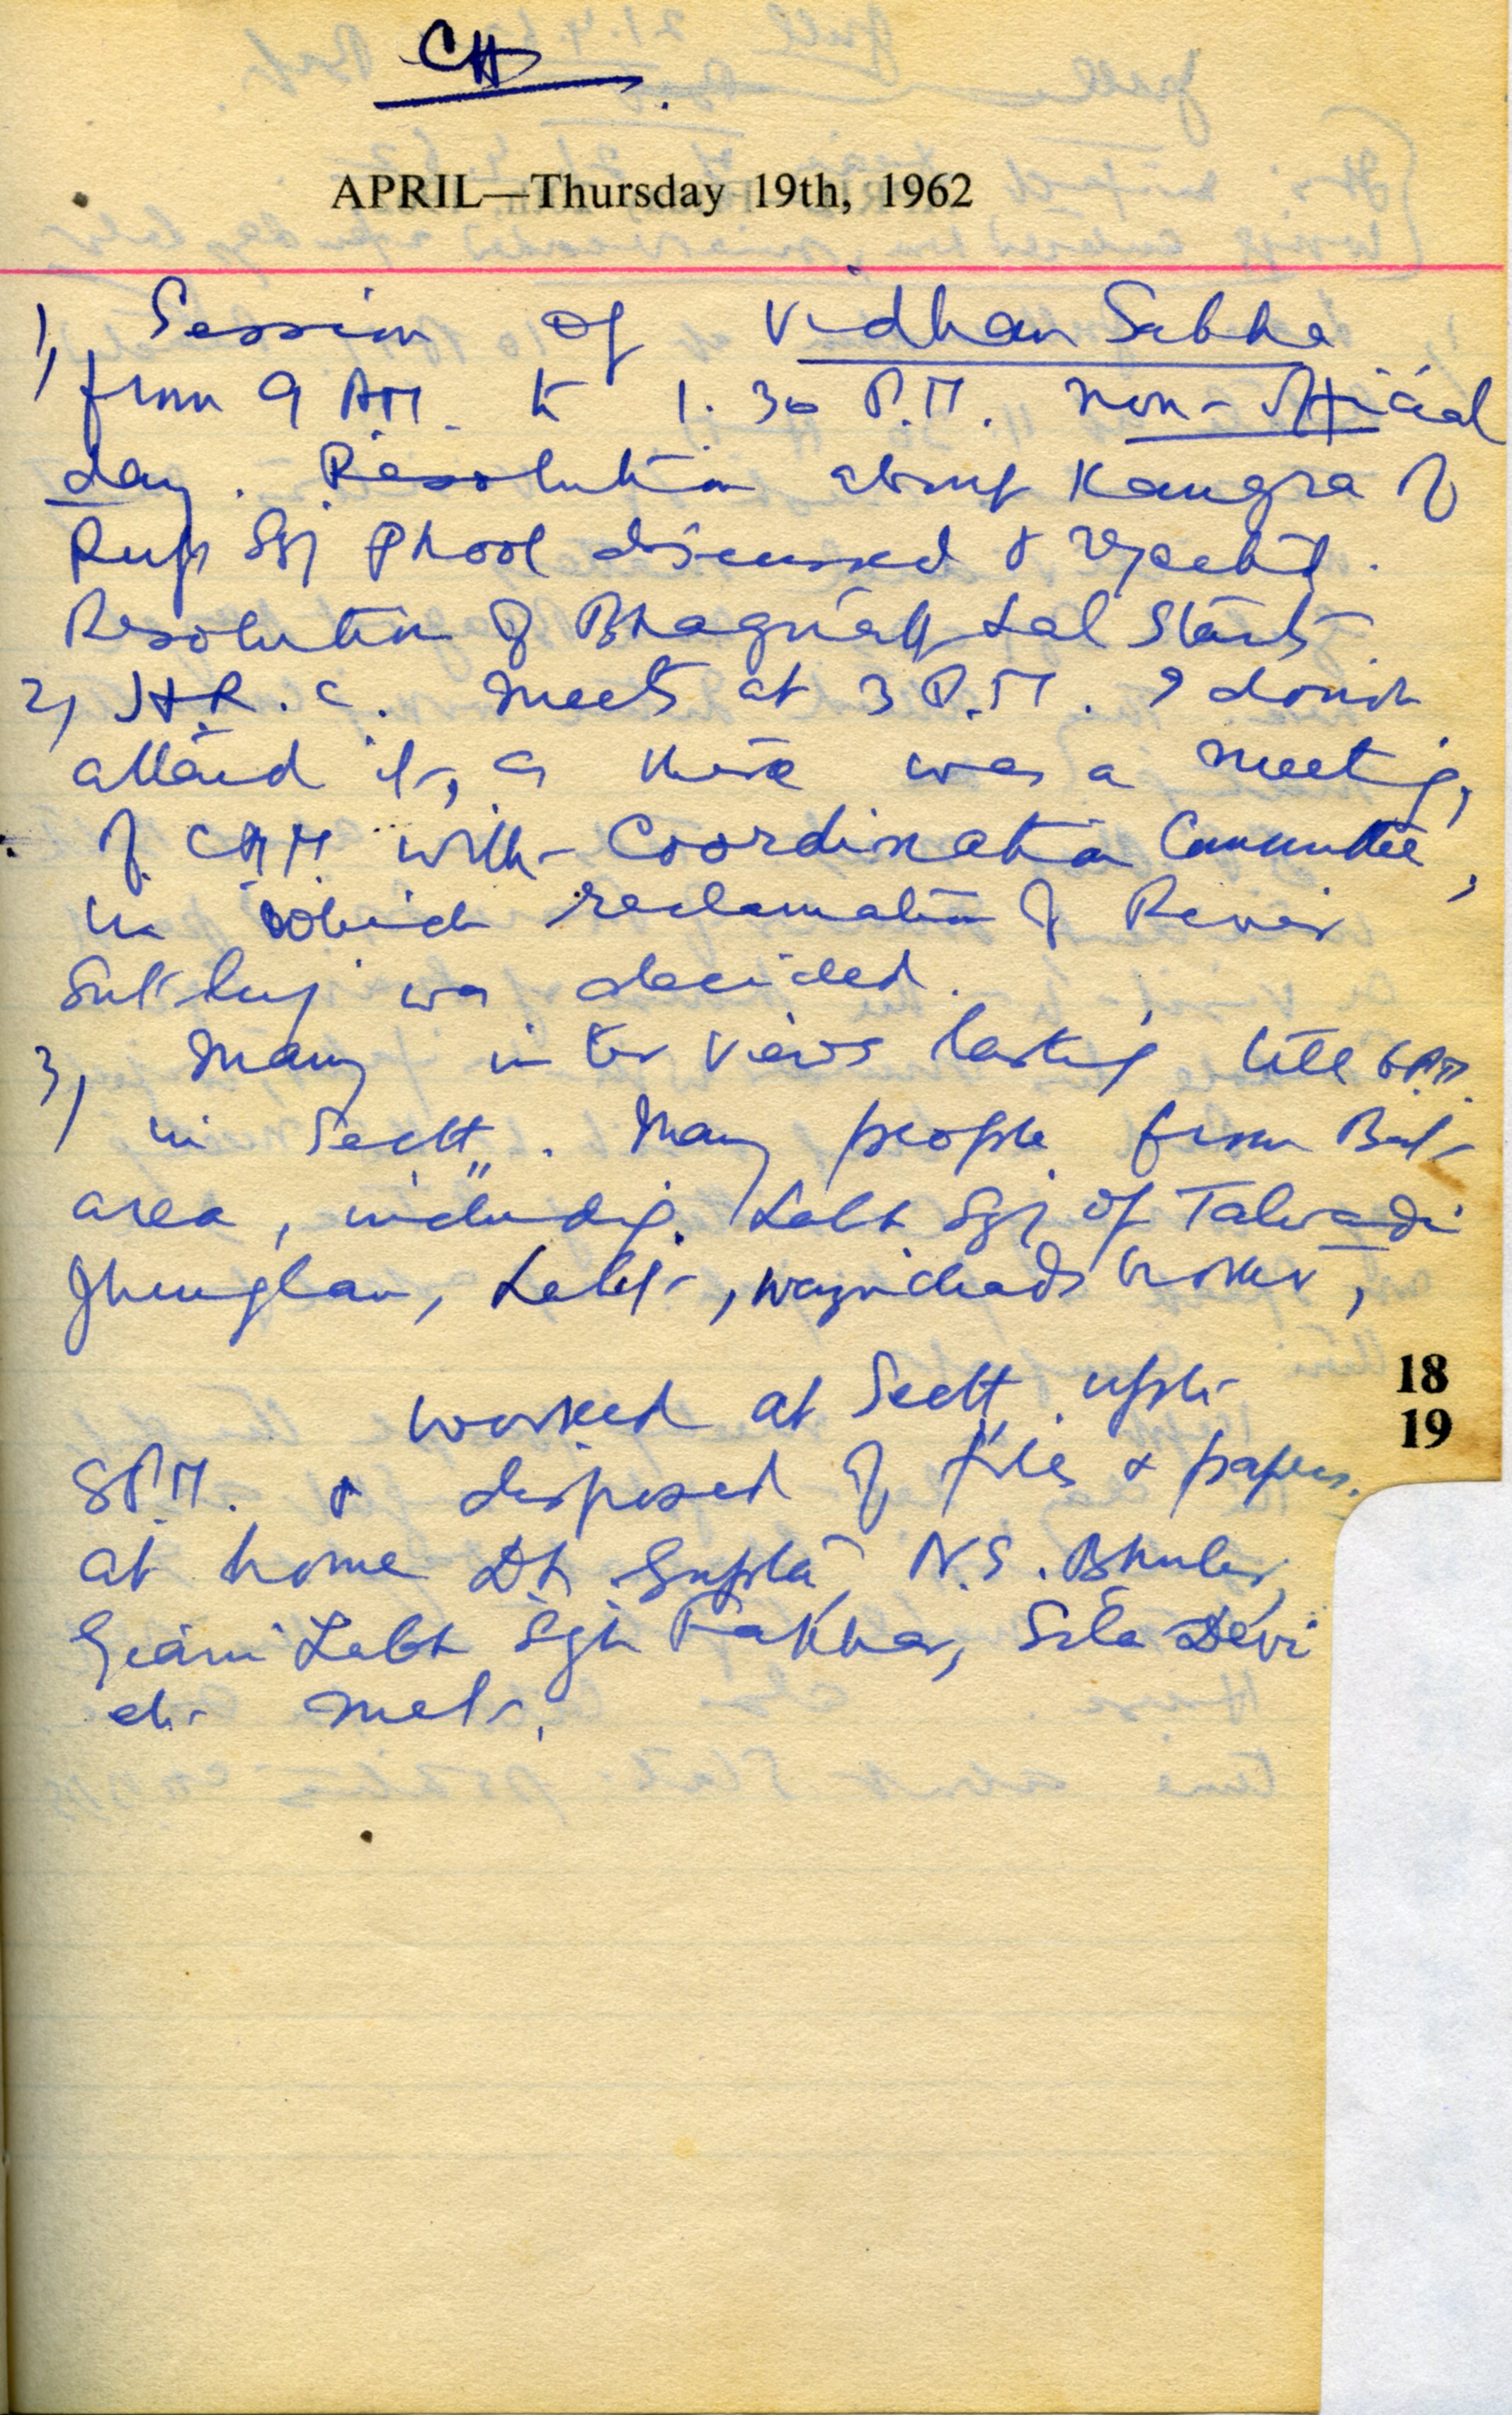 CH
APRIL—Thursday 19th, 1962
1) Session of Vidhan Sabha
from 9 AM. to 1.30 P.M. non-official
day. Resolution about Kangra of
Rup Sgh Phool discussed & rejected.
Resolution of Bhagnath Lal starts.
2) H.R.C. meets at 3 P.M. I donot
attend it, as there was a meeting,
of C.M with Coordination Committee,
in which reclamation of River
Sutlej was decided.
3) Many interviews lasting till 6 P.M.
in Sectt. Many people from
area, including Labh Sgh of Talwadi
Labh,
worked at Sectt. upto
18
19
8 P.M. & disposed of files & papers.
at home Dr. Gupta, N.S. Bhuler,
Giani Labh Sgh Fakhar, Sila Devi
etc met.